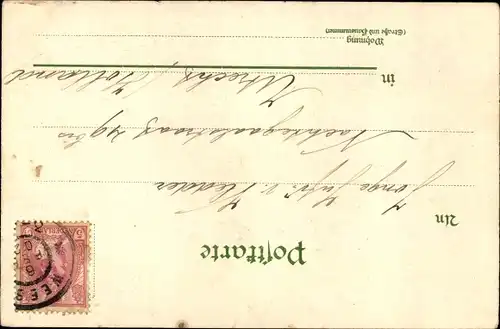 Postkarte
An Jonge Jufvr. v. Hedder
Nachtegaalstraat
in Utrecht, Holland
Wohnung
(Straße und Hausnummer)
WEES